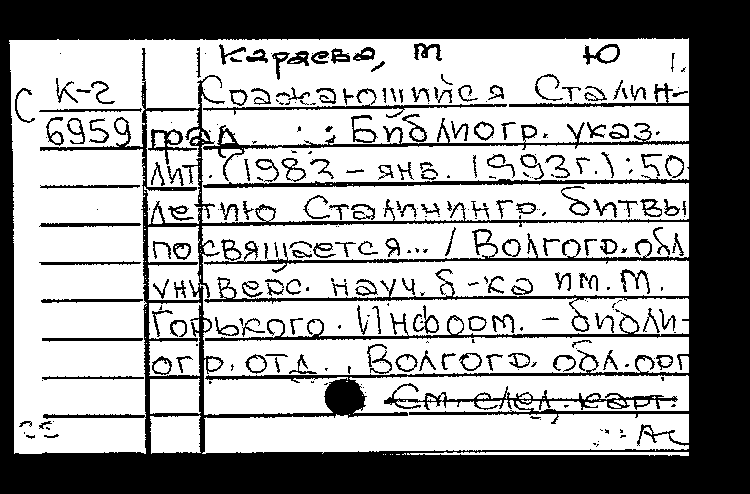 Караева, М Ю 1.
С К-2 Сражающийся Сталин-
6959 град : Библиогр. указ.
лит. (1983 - янв. 1993г.) : 50-
летию Сталинингр. битвы
посвящается... / Волгогр. обл
универс. науч. б-ка им. М.
Горького. Информ. - библи-
огр. отд., Волгогр. обл. орг
См. след. карт.